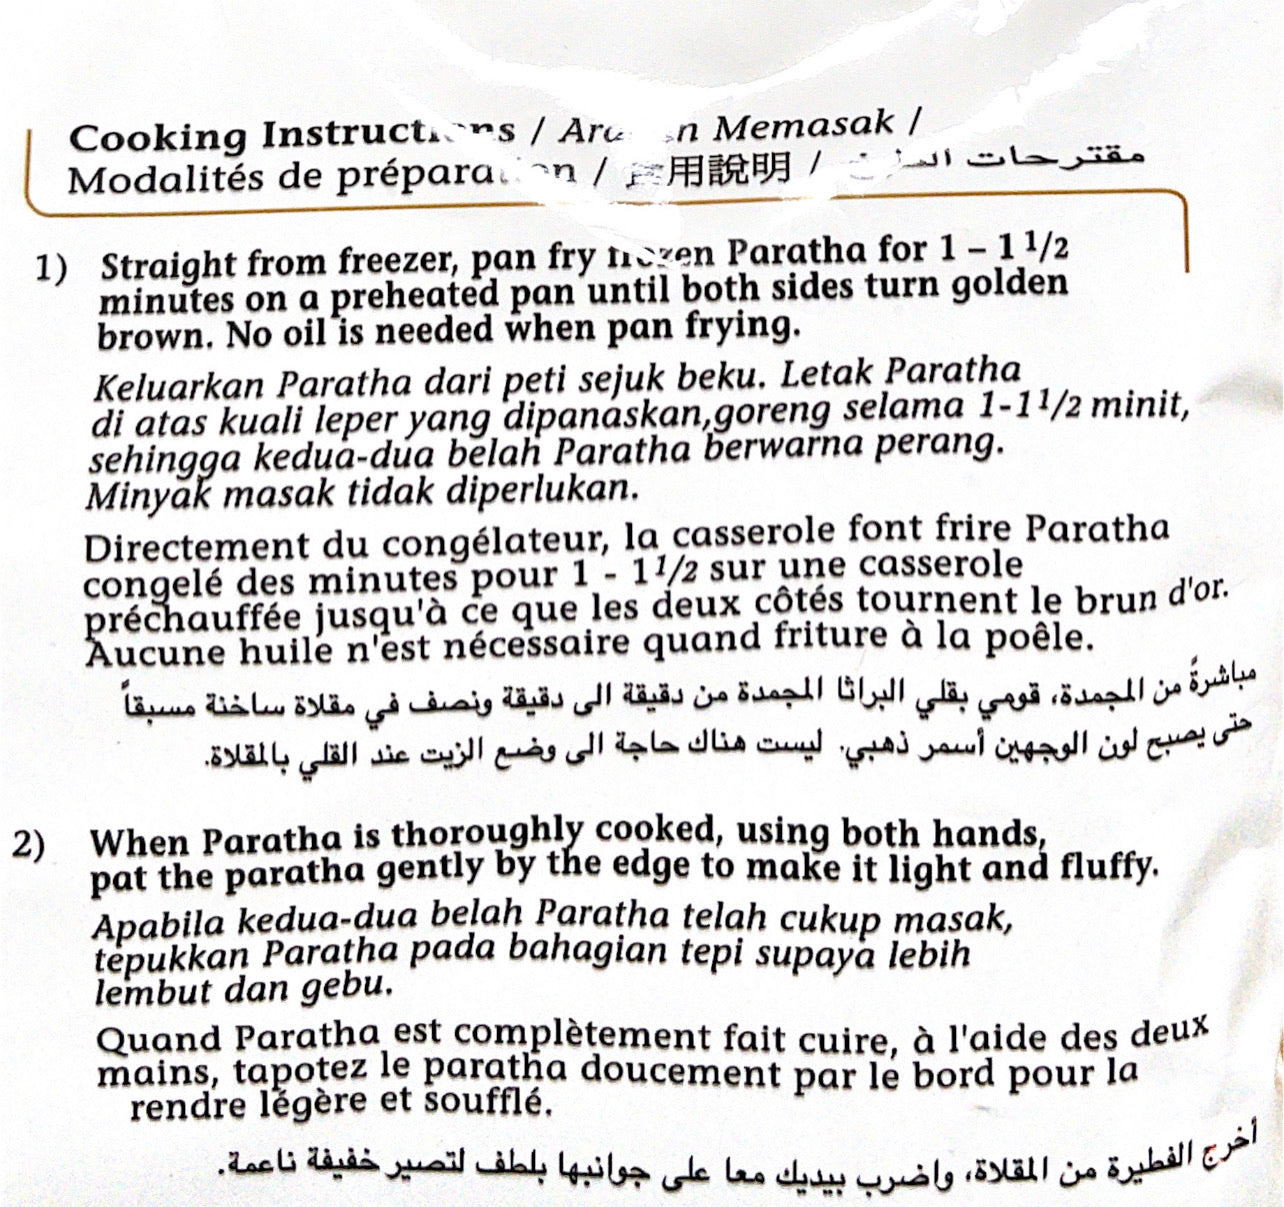 Cooking Instructions / Arahan Memasak /
Modalités de préparation / 用說明 / مقترحات
1) Straight from freezer, pan fry frozen Paratha for 1 – 1 1/2
minutes on a preheated pan until both sides turn golden
brown. No oil is needed when pan frying.
Keluarkan Paratha dari peti sejuk beku. Letak Paratha
di atas kuali leper yang dipanaskan,goreng selama 1-1 1/2 minit,
sehingga kedua-dua belah Paratha berwarna perang.
Minyak masak tidak diperlukan.
Directement du congélateur, la casserole font frire Paratha
congelé des minutes pour 1 - 1 1/2 sur une casserole
préchauffée jusqu'à ce que les deux côtés tournent le brun d'or.
Aucune huile n'est nécessaire quand friture à la poêle.
مباشرةً من المجمدة، قومي بقلي البراثا المجمدة من دقيقة الى دقيقة ونصف في مقلاة ساخنة مسبقاً
حتى يصبح لون الوجهين أسمر ذهبي. ليست هناك حاجة الى وضع الزيت عند القلي بالمقلاة.
2) When Paratha is thoroughly cooked, using both hands,
pat the paratha gently by the edge to make it light and fluffy.
Apabila kedua-dua belah Paratha telah cukup masak,
tepukkan Paratha pada bahagian tepi supaya lebih
lembut dan gebu.
Quand Paratha est complètement fait cuire, à l'aide des deux
mains, tapotez le paratha doucement par le bord pour la
rendre légère et soufflé.
أخرج الفطيرة من المقلاة، واضرب بيديك معا على جوانبها بلطف لتصير خفيفة ناعمة.